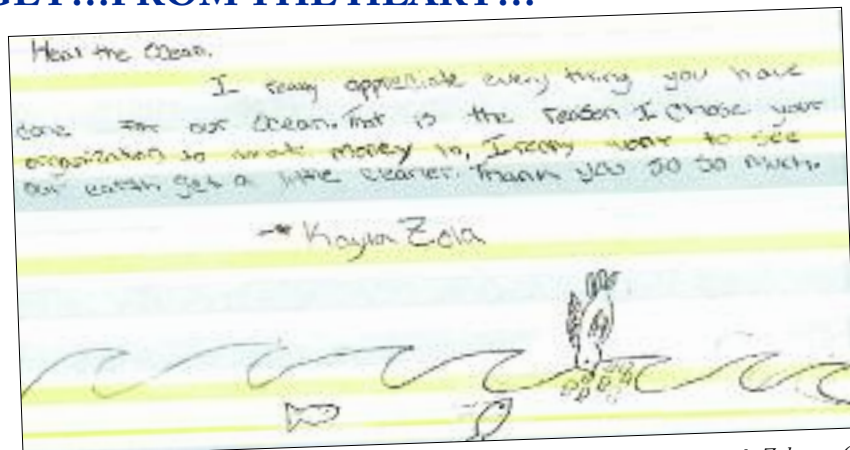 GET!!!FROM THE HEART!!!
Heal the Ocean,
I really appreciate every thing you have
done for our Ocean. That is the reason I chose your
organization to money to, I really want to see
our earth get a little cleaner. Thank you so so much.
Kayla Zola